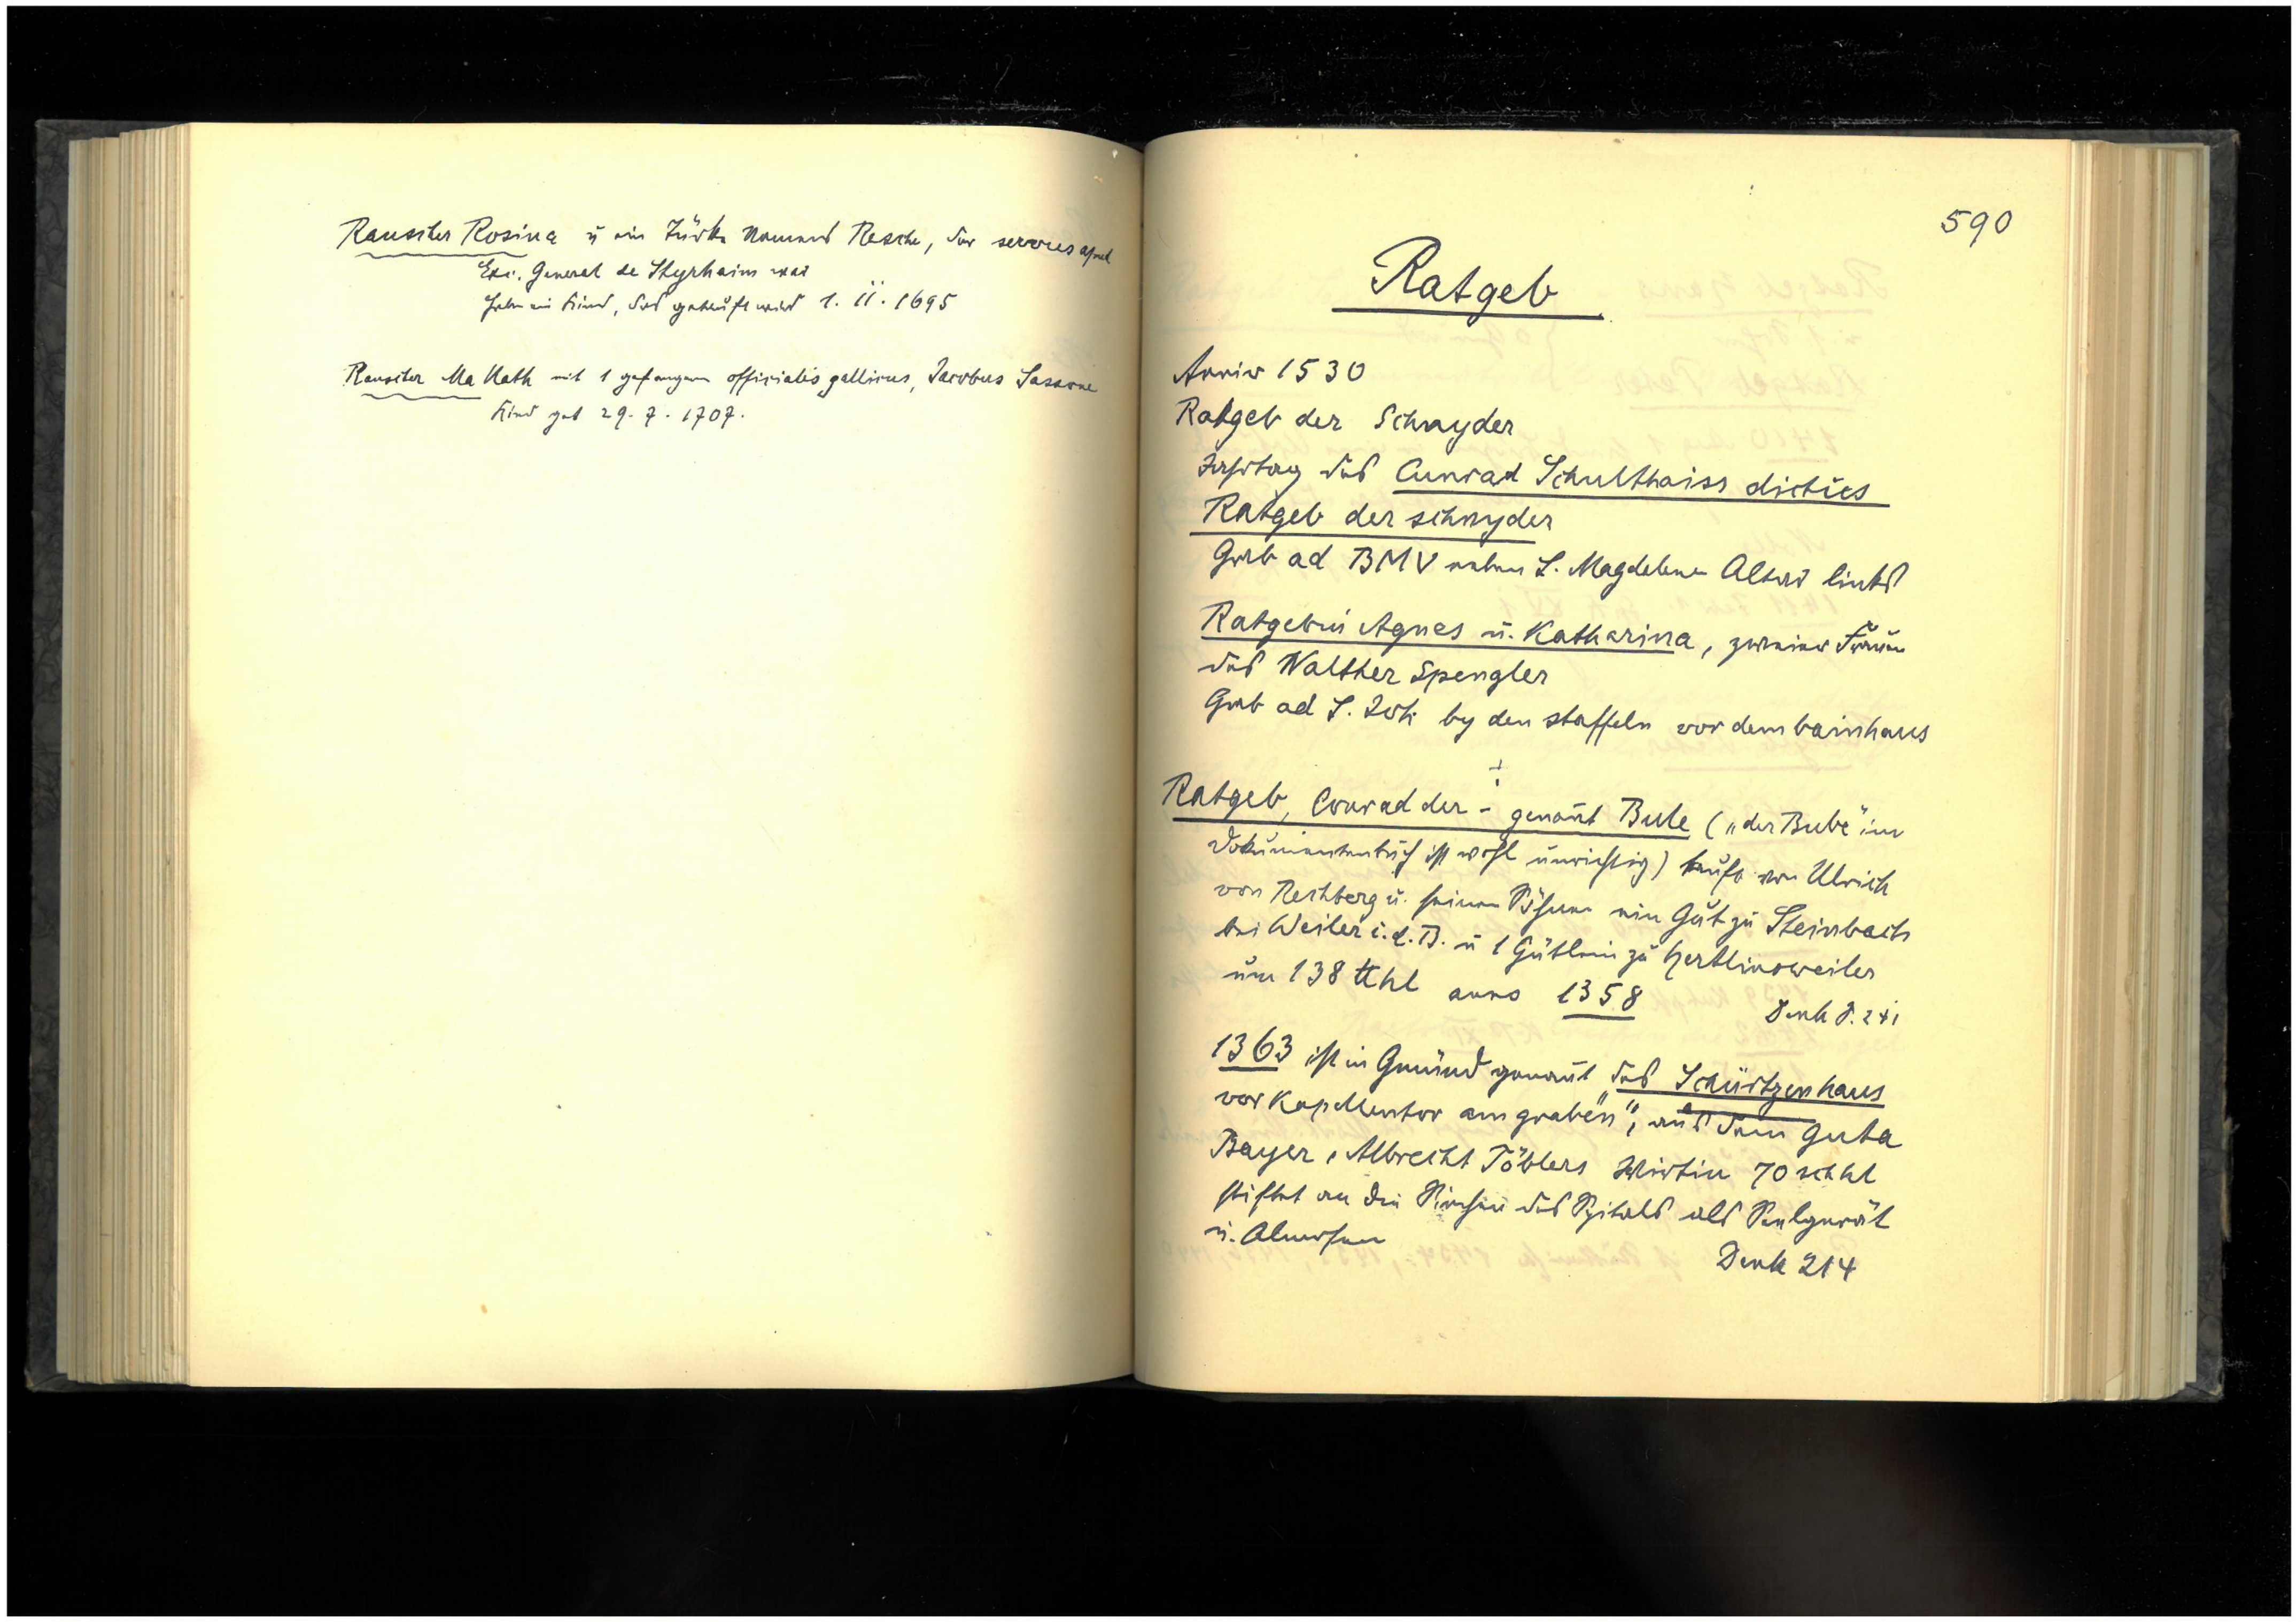 Rauscher Rosina u ein Türke Namens Resche, der servus apud
Exc. General de Styrhaim war
haben ein Kind, das getauft wird 1. II. 1695
Rauscher Ma Kath mit 1 gefangenen officialis gallicus, Jacobus Sassone
Kind get 29. 7. 1707.
590
Ratgeb
Anniv 1530
Ratgeb der Schnyder
Jahrtag des Cunrad Schulthaiss dictus
Ratgeb der schnyder
Grab ad BMV neben S. Magdalenen Altar links
Ratgebin Agnes u. Katharina, zweier Frauen
des Walther Spengler
Grab ad S. Joh by den staffeln vor dem bainhaus
Ratgeb, Conrad der - genant Bule („der Bube" im
Dokumentenbuch ist wohl unrichtig) kauft von Ulrich
von Rechberg u. seinen Söhnen ein Gut zu Steinbach
bei Weiler i. d. B. u 1 Gütlein zu Hertlinsweiler
um 138 ℔ hl anno 1358
Denk S. 241
1363 ist in Gmünd genannt „das Schürtzenhaus
vor Kapellentor am graben", aus dem Guta
Bayer, Albrecht Töblers Wirtin 70 sch hl
stiftet an die Siechen des Spitals als Seelgerät
u. Almosen
Denk 214